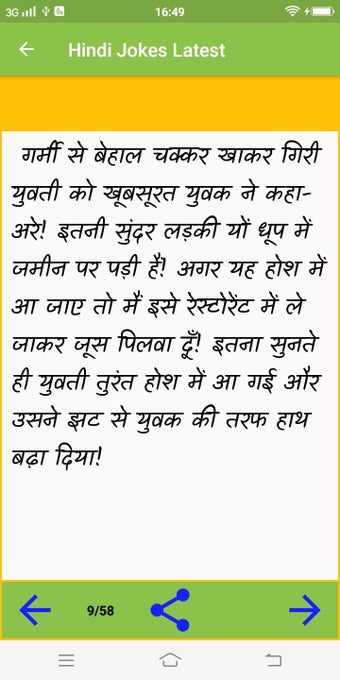 3G 16:49
Hindi Jokes Latest
गर्मी से बेहाल चक्कर खाकर गिरी
युवती को खूबसूरत युवक ने कहा-
अरे! इतनी सुंदर लड़की यों धूप में
जमीन पर पड़ी है! अगर यह होश में
आ जाए तो मैं इसे रेस्टोरेंट में ले
जाकर जूस पिलवा दूँ! इतना सुनते
ही युवती तुरंत होश में आ गई और
उसने झट से युवक की तरफ हाथ
बढ़ा दिया!
9/58